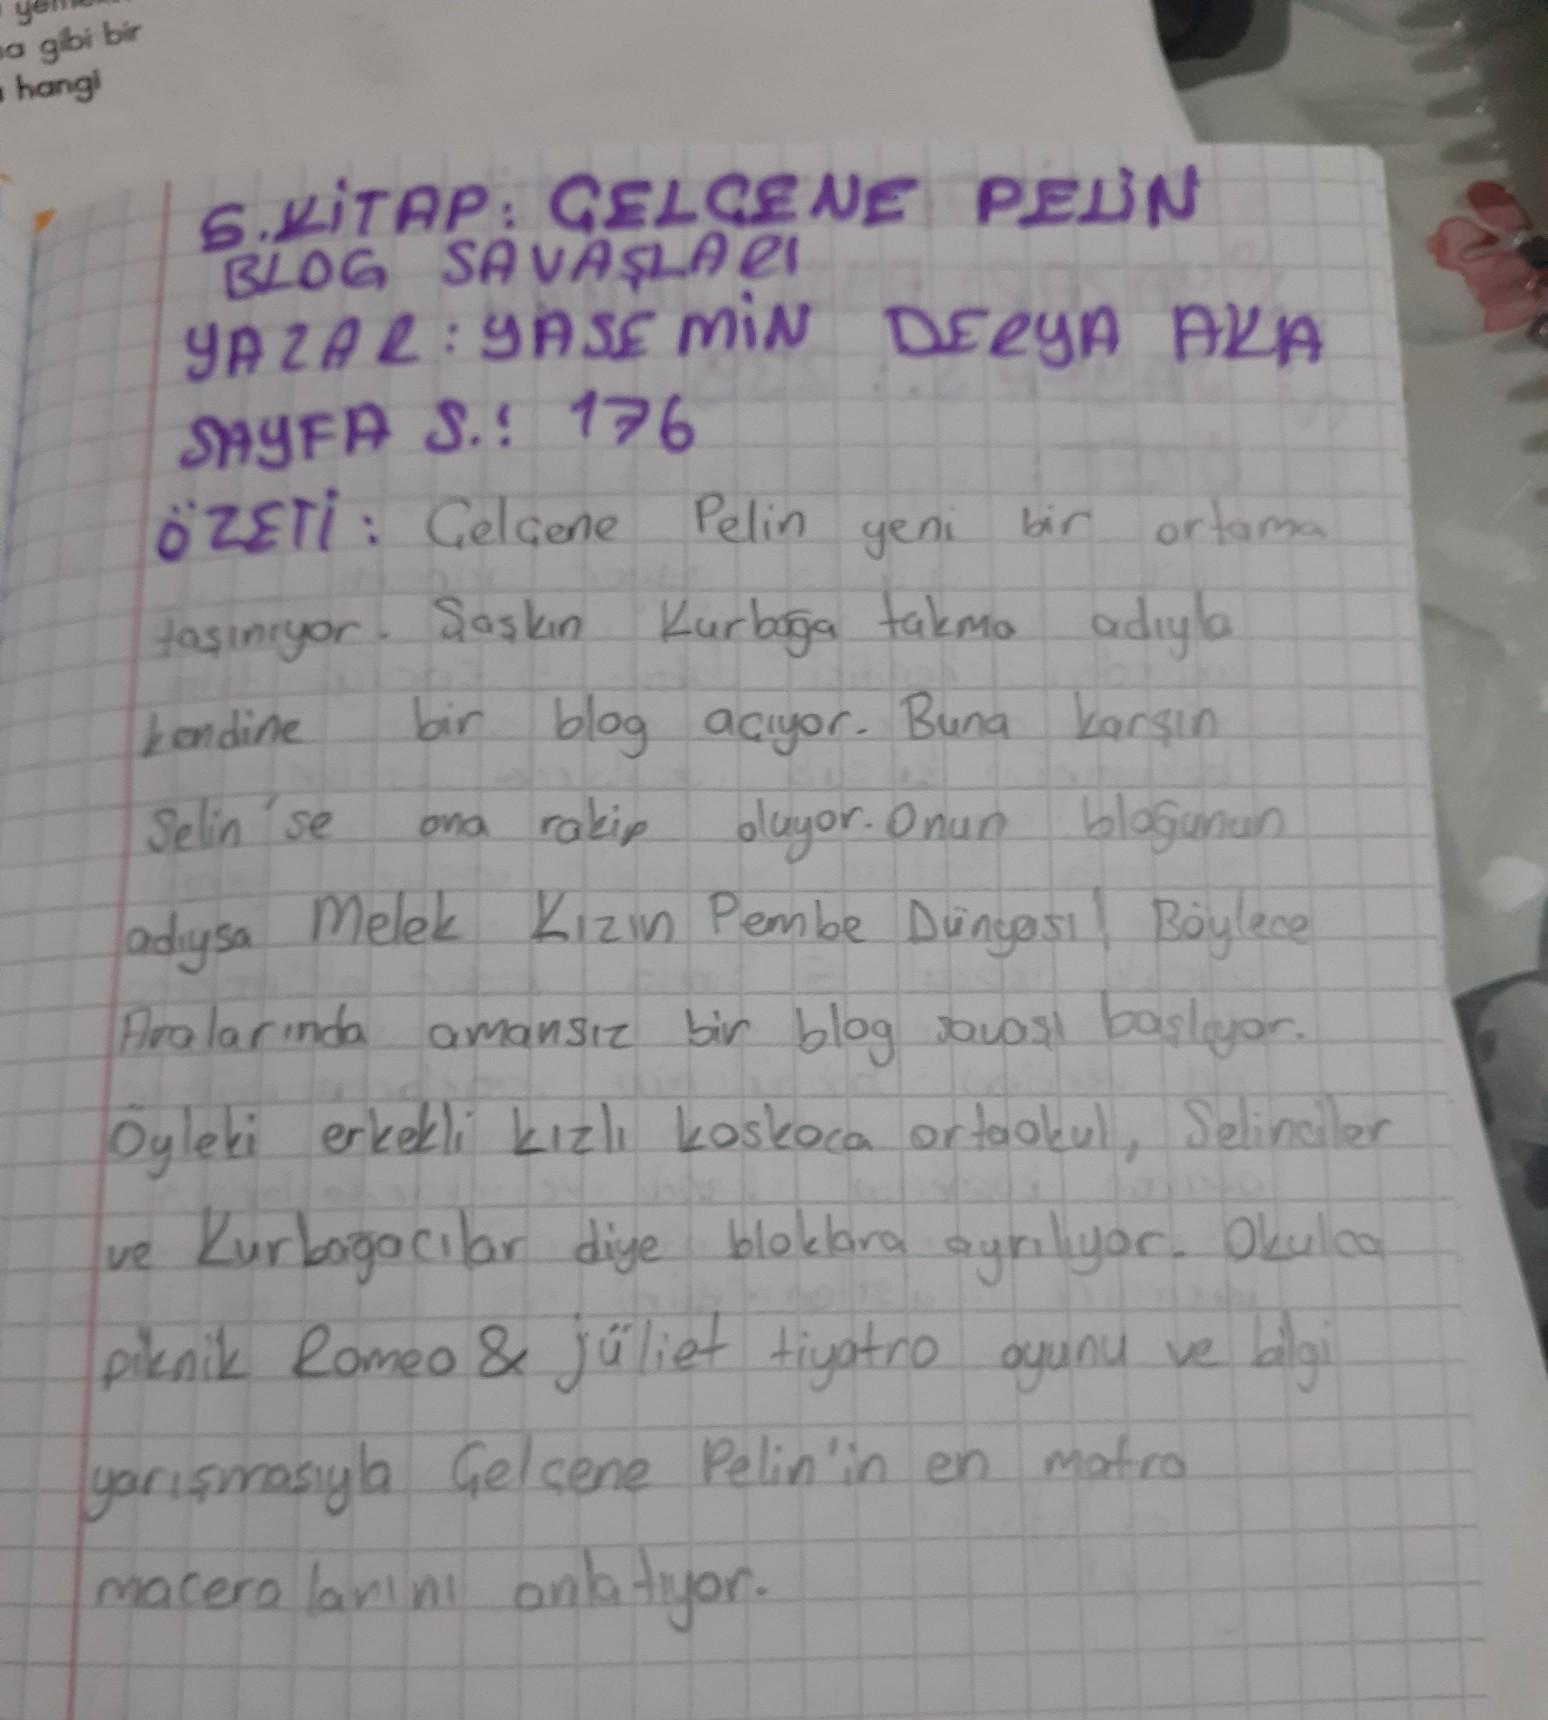 a gibi bir
hangi
6.KİTAP: ÇELÇENE PELİN
BLOG SAVAŞLARI
YAZAR: YASEMİN DERYA AKA
SAYFA S.: 176
ÖZETİ: Çelçene Pelin yeni bir ortama
taşınıyor. Şaşkın Kurbağa takma adıyla
kendine bir blog açıyor. Buna karşın
Selin'se ona rakip oluyor. Onun bloğunun
adıysa Melek Kızın Pembe Dünyası! Böylece
Aralarında amansız bir blog savaşı başlıyor.
Öyleki erkekli kızlı koskoca ortaokul, Selinciler
ve Kurbağacılar diye bloklara ayrılıyor. Okulca
piknik Romeo & jüliet tiyatro oyunu ve bilgi
yarışmasıyla Çelçene Pelin'in en matra
maceralarını anlatıyor.